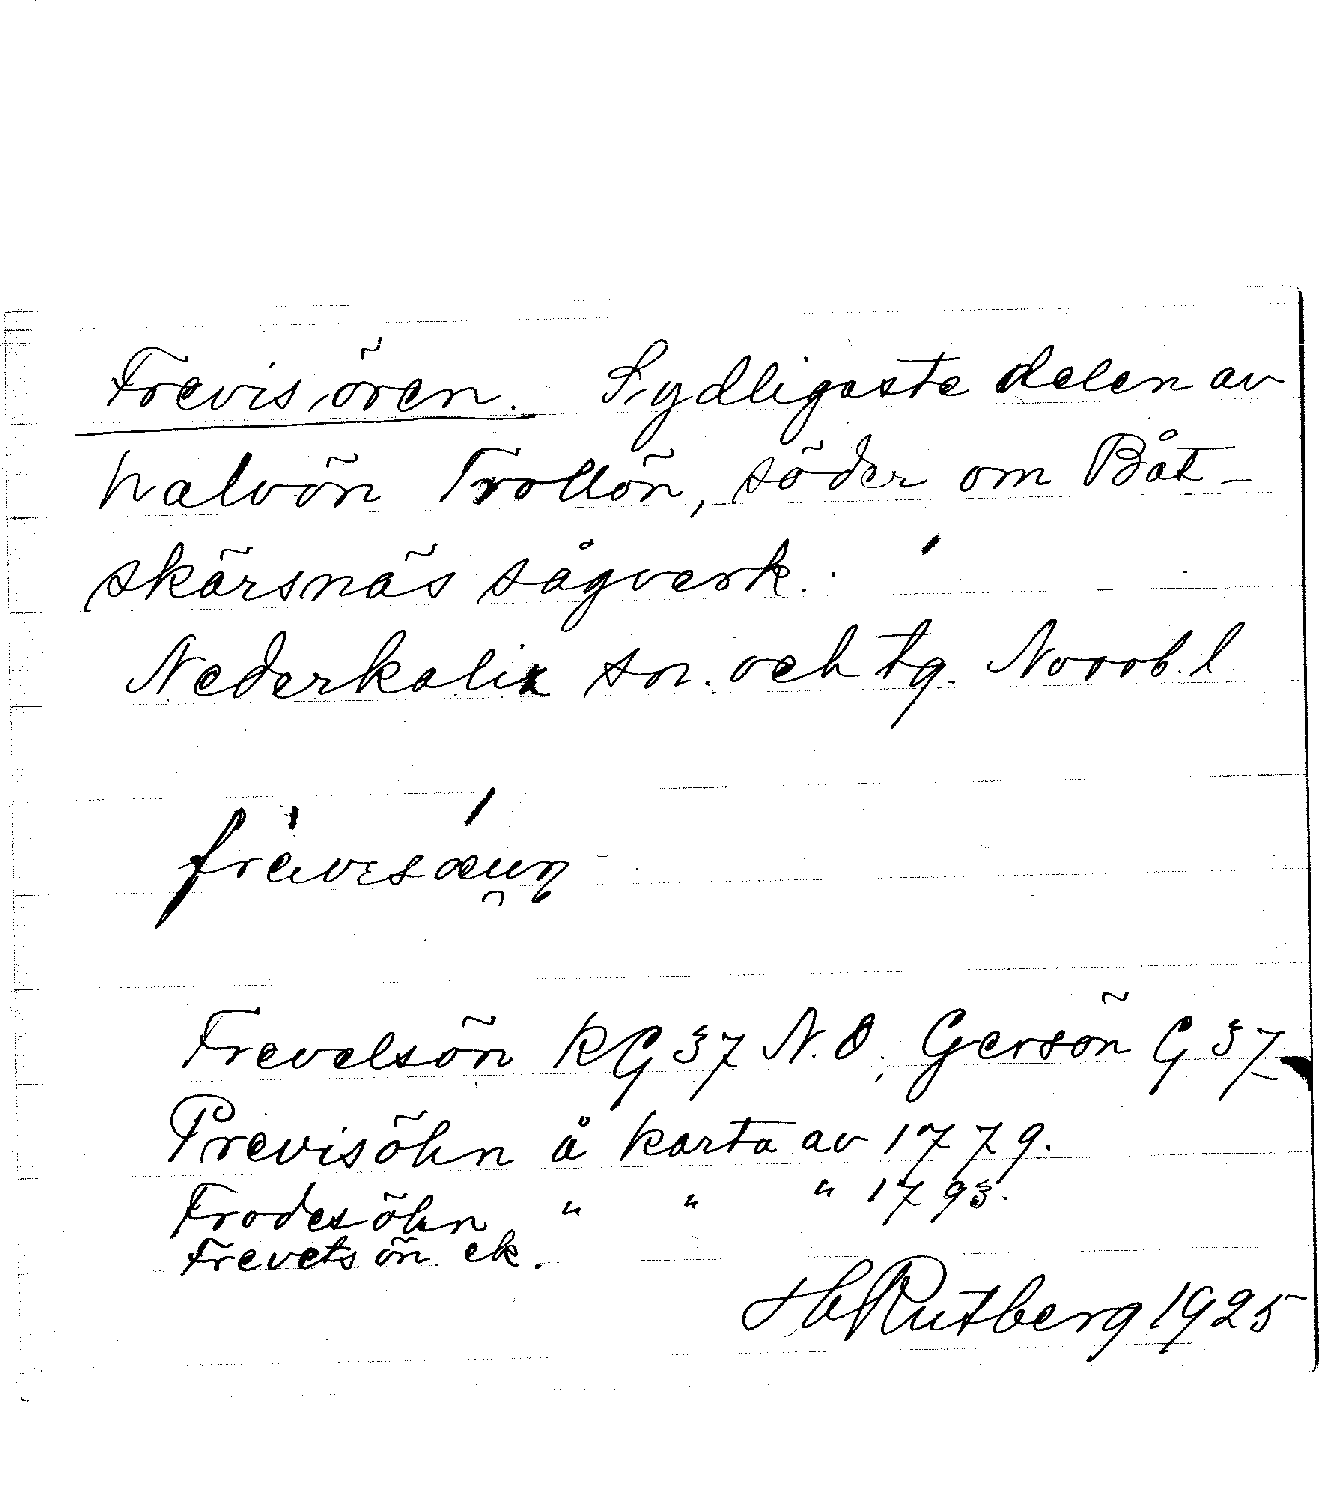 Frevisören. Sydligaste delen av
halvön Trollön, söder om Båt-
skärsnäs sågverk.
Nederkalix sn. och tg. Norrb. l
Frevelsön KG 37 N.O. Gersön G 37
Previsöhn å karta av 1779.
Frodesöhn " " " 1793.
Frevetsön ek.
H Rutberg 1925